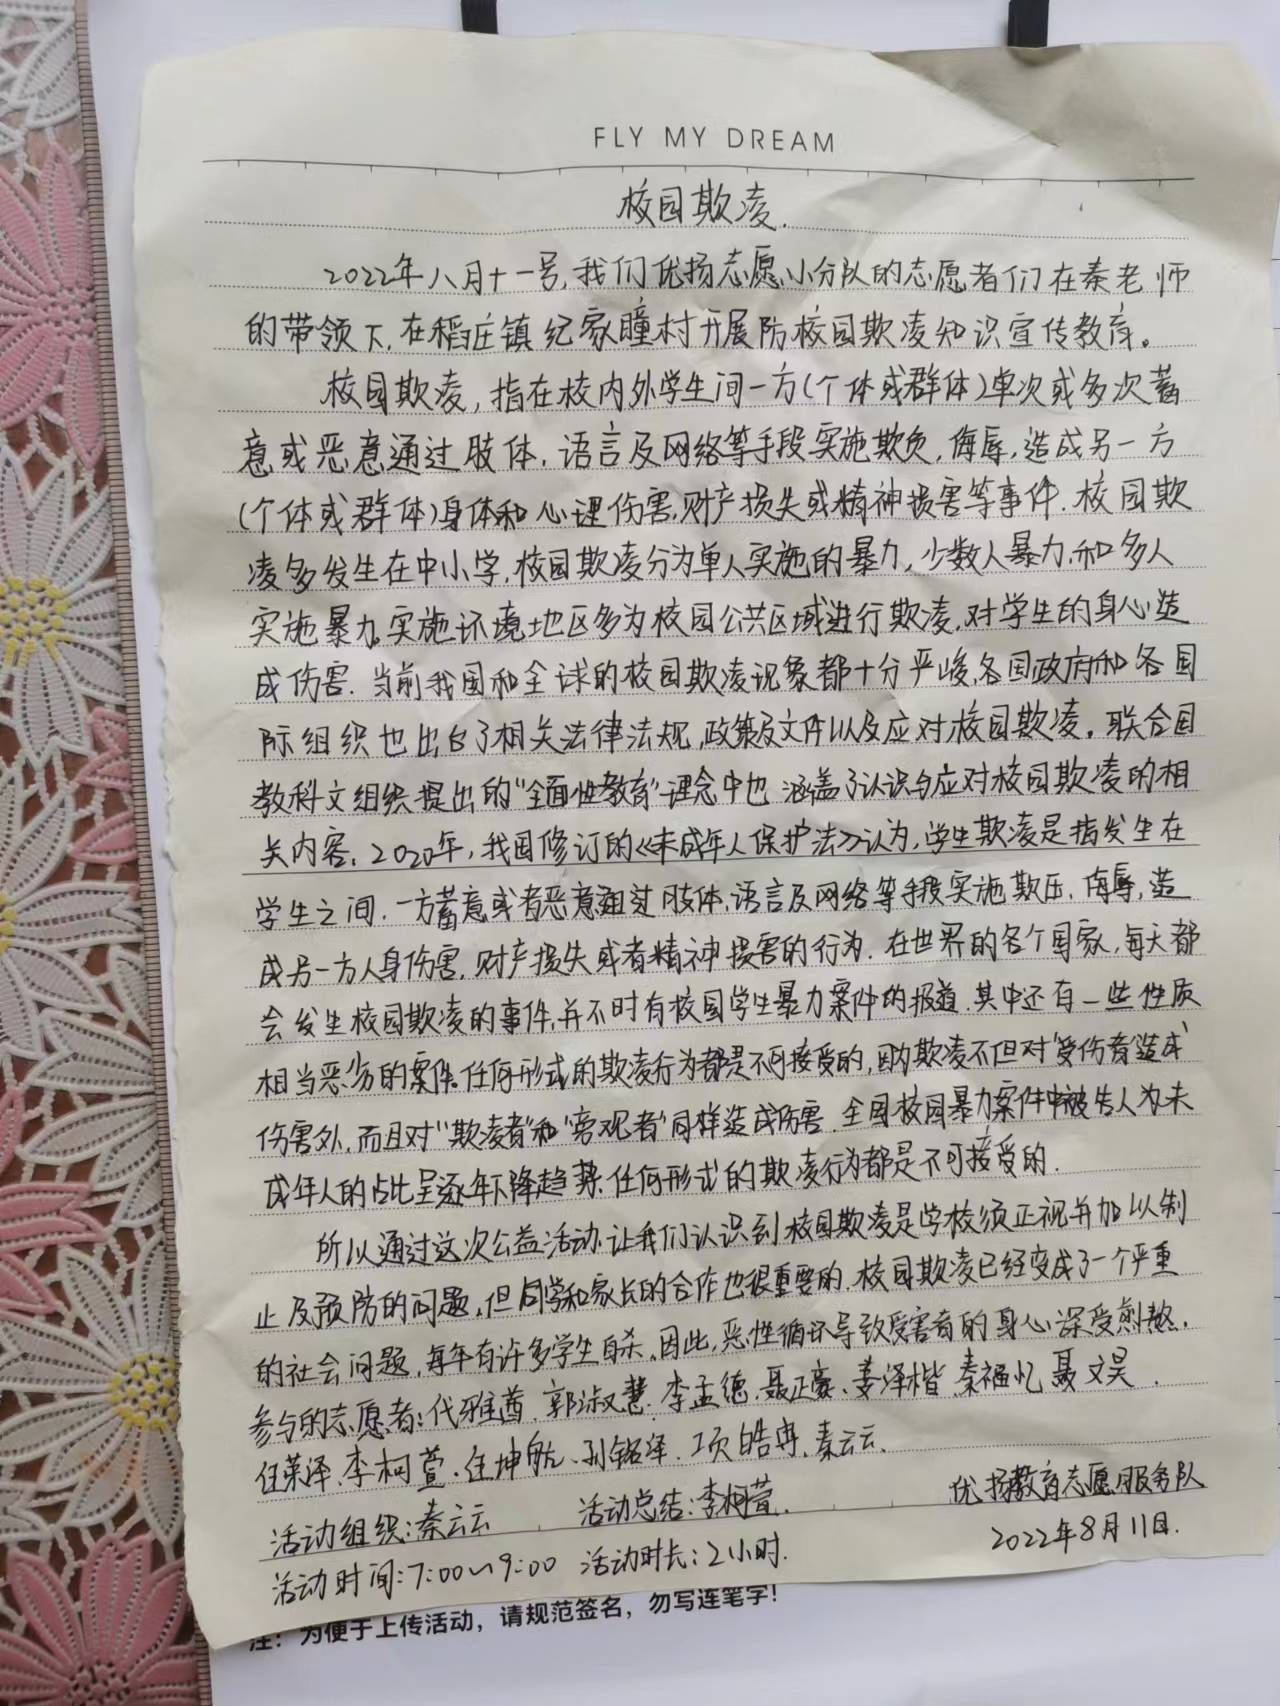 FLY MY DREAM
校园欺凌.
2022年八月十一号,我们优扬志愿小分队的志愿者们在秦老师
的带领下,在稻庄镇纪家疃村开展防校园欺凌知识宣传教育。
校园欺凌,指在校内外学生间一方(个体或群体)单次或多次蓄
意或恶意通过肢体、语言及网络等手段实施欺负,侮辱,造成另一方
(个体或群体)身体和心理伤害,财产损失或精神损害等事件.校园欺
凌多发生在中小学,校园欺凌分为单人实施的暴力,少数人暴力,和多人
实施暴力。实施环境地区多为校园公共区域进行欺凌,对学生的身心造
成伤害.当前我国和全球的校园欺凌现象都十分严峻,各国政府和各国
际组织也出台了相关法律法规,政策及文件以及应对校园欺凌。联合国
教科文组织提出的“全面性教育”理念中也涵盖了认识与应对校园欺凌的相
关内容,2020年,我国修订的《未成年人保护法》认为,学生欺凌是指发生在
学生之间.一方蓄意或者恶意通过肢体,语言及网络等手段实施欺压,侮辱,造
成另一方人身伤害,财产损失或者精神损害的行为.在世界的各个国家,每天都
会发生校园欺凌的事件,并不时有校园学生暴力案件的报道.其中还有一些性质
相当恶劣的案件.任何形式的欺凌行为都是不可接受的,因为欺凌不但对“受伤者”造成
伤害外,而且对“欺凌者”和“旁观者”同样造成伤害.全国校园暴力案件中被告人为未
成年人的占比呈逐年下降趋势.任何形式的欺凌行为都是不可接受的.
所以通过这次公益活动.让我们认识到校园欺凌是学校须正视并加以制
止及预防的问题,但同学和家长的合作也很重要的.校园欺凌已经变成了一个严重
的社会问题,每年有许多学生自杀.因此,恶性循环导致受害者的身心深受煎熬.
参与的志愿者:代雅茜.郭淑慧.李孟德.聂正豪、姜泽楷 秦福忆 聂文昊.
任荣泽.李柯萱.任坤航、孙铭泽.项皓冉.秦云云.
活动组织:秦云云 活动总结:李柯萱. 优扬教育志愿服务队
活动时间:7:00~9:00 活动时长:2小时. 2022年8月11日.
注：为便于上传活动，请规范签名，勿写连笔字！